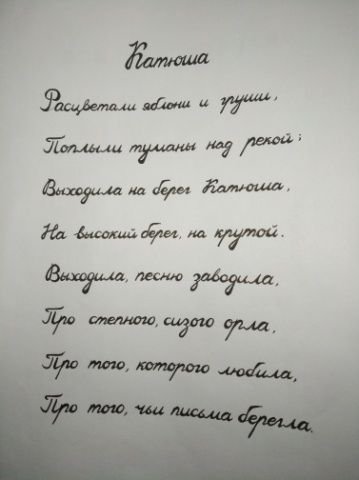 Катюша
Расцветали яблони и груши,
Поплыли туманы над рекой;
Выходила на берег Катюша,
На высокий берег, на крутой.
Выходила, песню заводила,
Про степного, сизого орла,
Про того, которого любила,
Про того, чьи письма берегла.